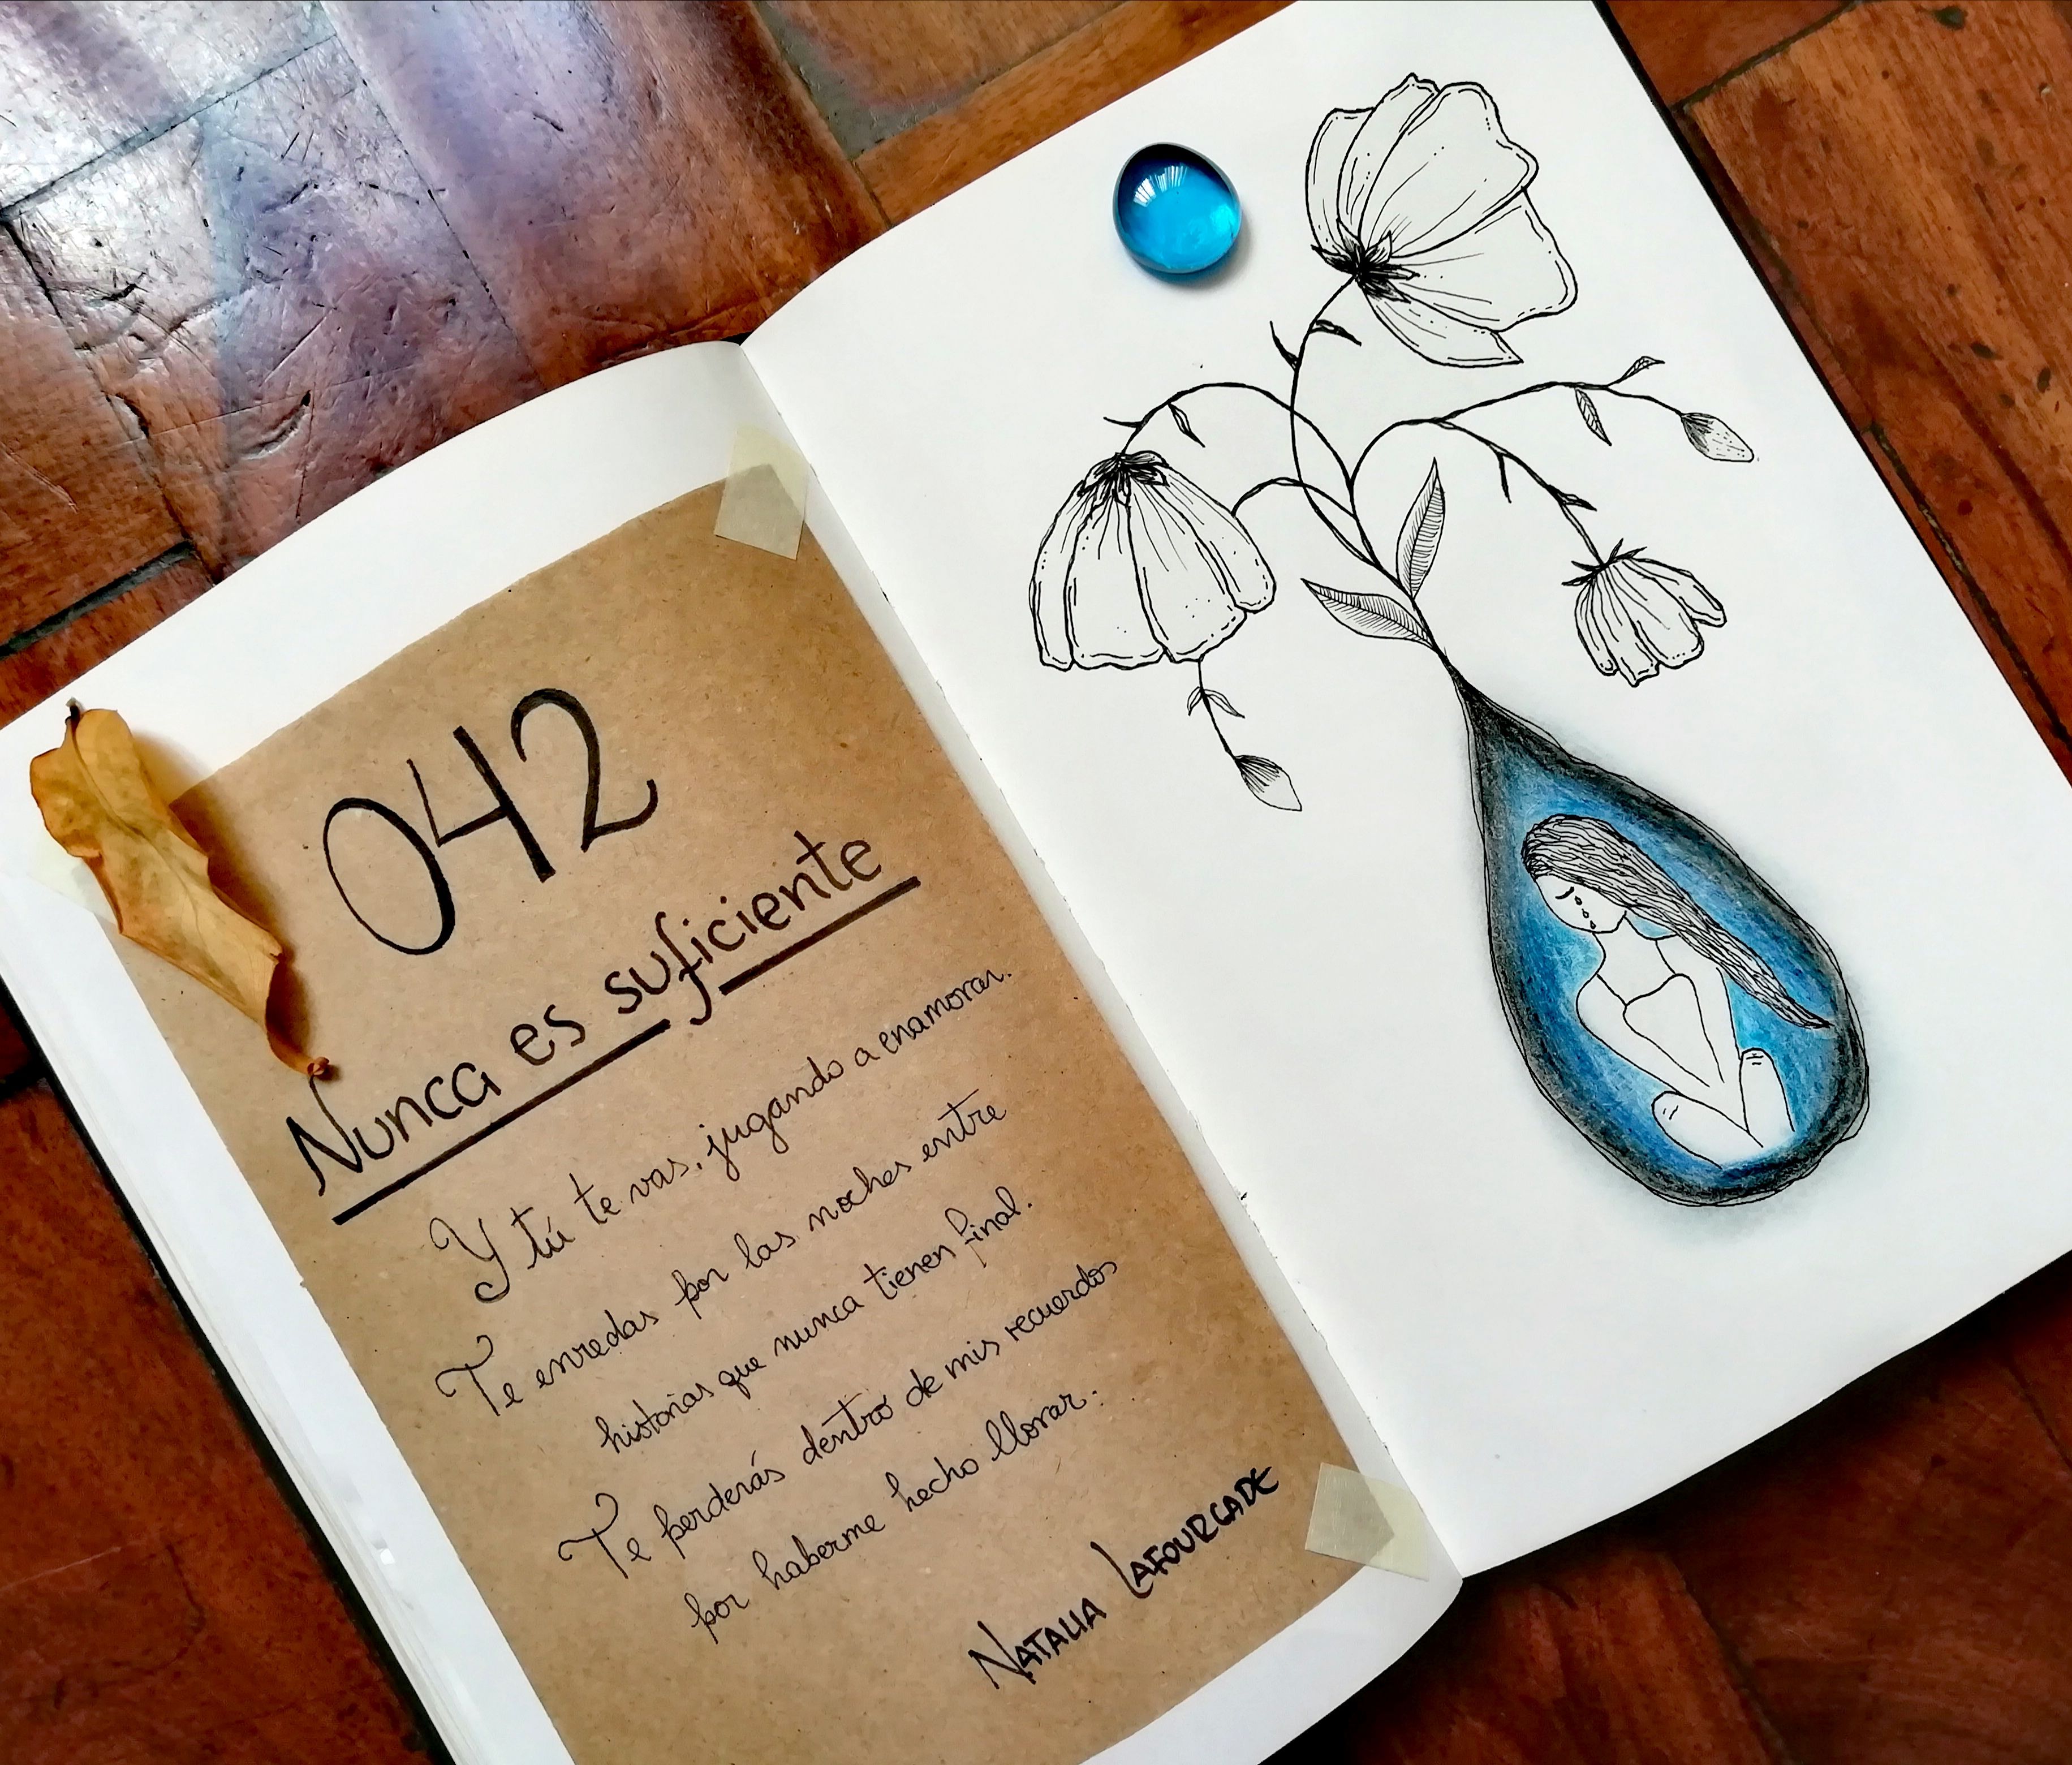 042
Nunca es suficiente
Y tú te vas, jugando a enamorar.
Te enredas por las noches entre
historias que nunca tienen final.
Te perderás dentro de mis recuerdos
por haberme hecho llorar.
NATALIA LAFOURCADE